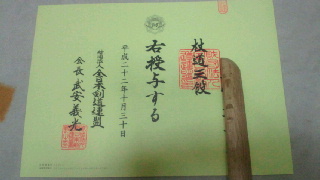 杖道三段
右授与する
平成二十二年十月三十日
財団法人全日本剣道連盟
会長武安義光